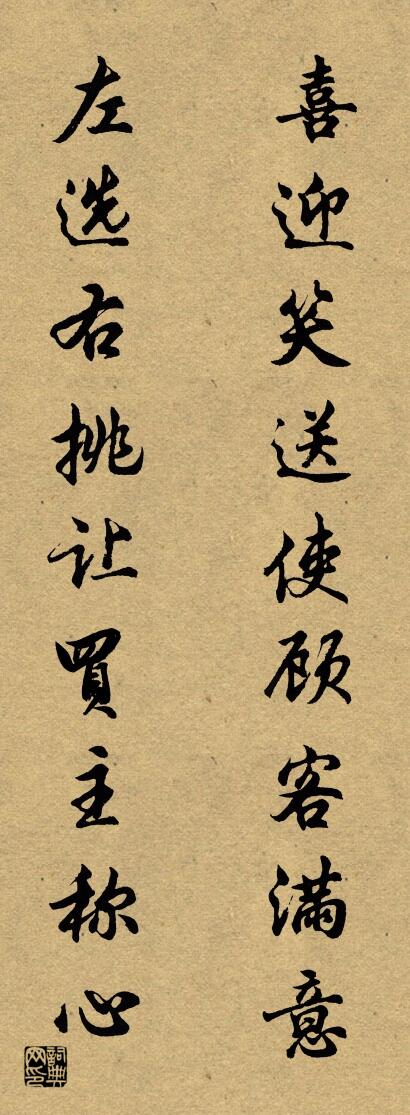 喜迎笑送使顾客满意
左选右挑让買主称心
詞典网印